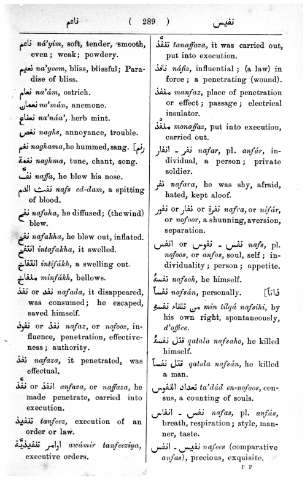 ناعم ( 289 ) نفيس
ناعم nā'ym, soft, tender, smooth,
even; weak; powdery.
نعيم na'yeem, bliss, blissful; Para-
dise of bliss.
نعام na'ām, ostrich.
نعمان na'mān, anemone.
نعناع na'nāa', herb mint.
نغص naghs, annoyance, trouble.
نغم naghama, he hummed, sang.
نغمة naghma, tune, chant, song.
نف naffa, he blew his nose.
نفث الدم nafs ed-dam, a spitting
of blood.
نفخ nafaka, he diffused; (the wind)
blew.
نفخ nafakha, he blew out, inflated.
انتفخ intafakha, it swelled.
انتفاخ intifākh, a swelling out.
منفاخ minfākh, bellows.
نفد or نفذ nafada, it disappeared,
was consumed; he escaped,
saved himself.
نفذ or نفوذ nafaz, or nafooz, in-
fluence, penetration, effective-
ness; authority.
نفذ nafaza, it penetrated, was
effectual.
نفذ or انفذ anfaza, or naffaza, he
made penetrate, carried into
execution.
تنفيذ tanfeez, execution of an
order or law.
اوامر تنفيذية awāmir tanfeeziya,
executive orders.
تنفذ tanaffaza, it was carried out,
put into execution.
نافذ nāfiz, influential; (a law) in
force; a penetrating (wound).
منفذ manfaz, place of penetration
or effect; passage; electrical
insulator.
منفذ monaffaz, put into execution,
carried out.
نفر - انفار nafar, pl. anfār, in-
dividual, a person; private
soldier.
نفر nafara, he was shy, afraid,
hated, kept aloof.
نفر or نفرة or نفار nafra, or nifār,
or nafoor, a shunning, aversion,
separation.
نفس - نفوس or انفس nafs, pl.
nafoos, or anfos, soul, self; in-
dividuality; person; appetite.
نفسه nafsoh, he himself.
نفسا nafsān, personally.
من تلقاء نفسه min tilyā nafsihi, by
his own right, spontaneously,
d'office.
قتل نفسه qatala nafsaho, he killed
himself.
قتل نفسا qatala nafsān, he killed
a man.
تعداد النفوس ta'dād en-nafoos, cen-
sus, a counting of souls.
نفس - انفاس nafas, pl. anfās,
breath, respiration; style, man-
ner, taste.
نفيس - انفس nafees (comparative
anfas), precious, exquisite.